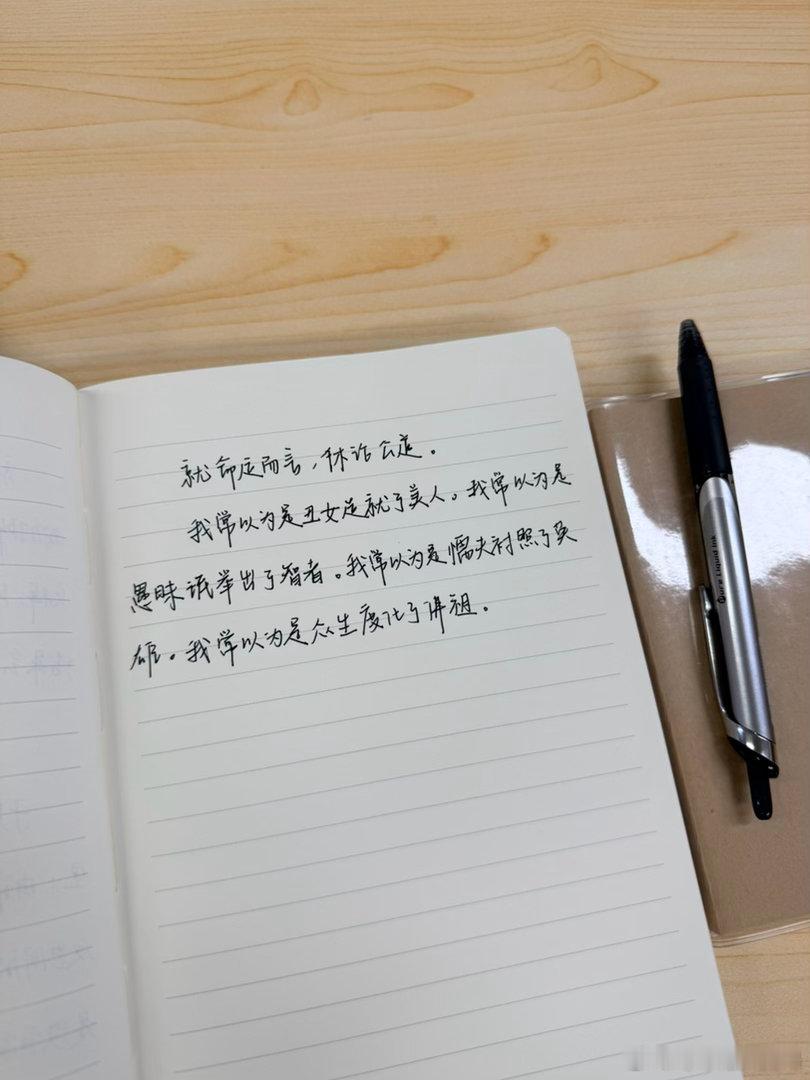 就命运而言，休论公道。
我常以为是丑女造就了美人。我常以为是
愚昧诋举出了智者。我常以为是懦夫衬照了英
雄。我常以为是众生度化了佛祖。
Pure Liquid Ink